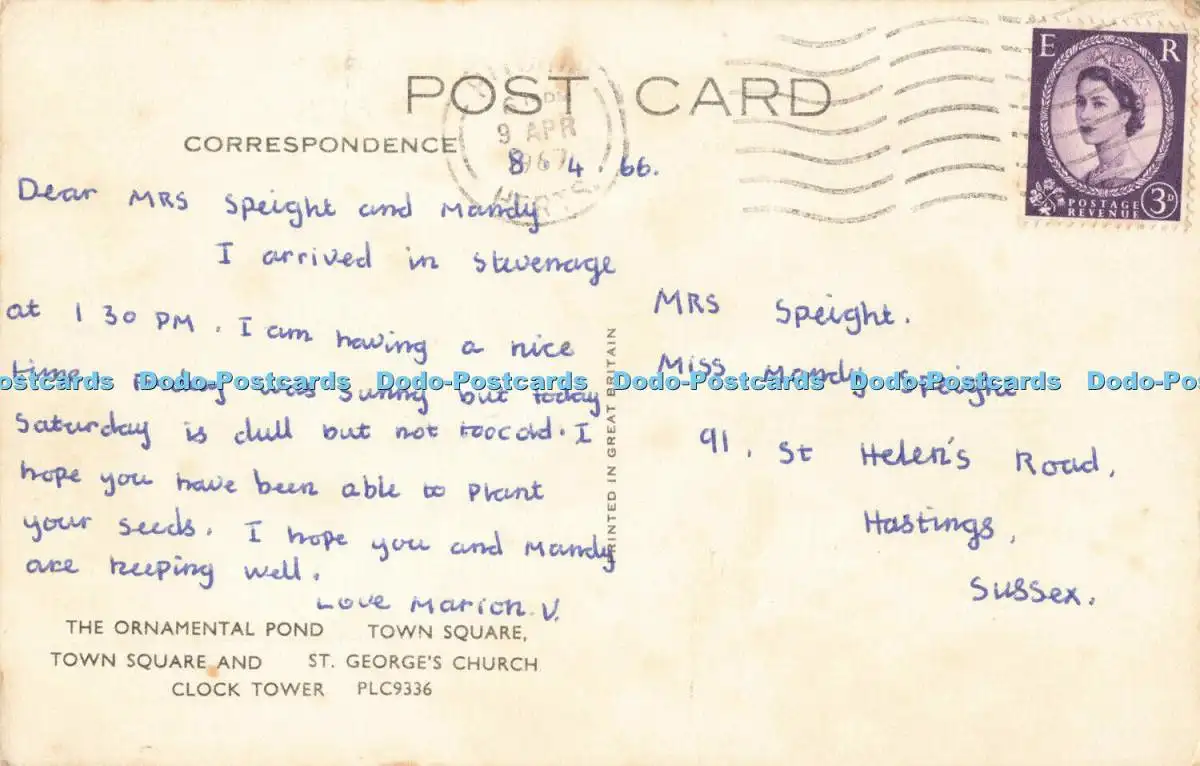 POST CARD
CORRESPONDENCE
9 APR
1967
HERTS.
E R
POSTAGE
REVENUE
3D
8 4. 66.
Dear MRS Speight and Mandy
I arrived in Stevenage
at 1 30 PM. I am having a nice
time. was sunny but today
Saturday is dull but not toocold. I
hope you have been able to plant
your seeds. I hope you and Mandy
are keeping well.
Love Marion. V.
THE ORNAMENTAL POND TOWN SQUARE,
TOWN SQUARE AND ST. GEORGE'S CHURCH
CLOCK TOWER PLC9336
PRINTED IN GREAT BRITAIN
MRS Speight.
MISS Mandy Speight
91, St Helen's Road,
Hastings,
Sussex.
Dodo-Postcards Dodo-Postcards Dodo-Postcards Dodo-Postcards Dodo-Postcards Dodo-Po